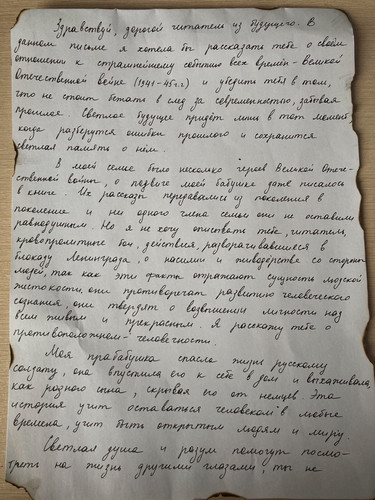 Здравствуй, дорогой читатель из будущего. В
данном письме я хотела бы рассказать тебе о своём
отношении к страшнейшему событию всех времён - Великой
Отечественной войне (1941-45г.г.) и убедить тебя в том,
что не стоит бежать в след за современностью, забывая
прошлое. Светлое будущее придёт лишь в тот момент,
когда разберутся ошибки прошлого и сохранится
светлая память о нём.
В моей семье было несколько героев Великой Отече-
ственной войны, о подвиге моей бабушки даже писалось
в книге. Их рассказы передавались из поколения в
поколение и ни одного члена семьи они не оставили
равнодушным. Но я не хочу описывать тебе, читатель,
кровопролитные бои, действия, разворачивавшиеся в
блокаду Ленинграда, о насилии и живодёрстве со стороны
людей, так как эти факты отражают сущность людской
жестокости, они противоречат развитию человеческого
сознания, они твердят о возвышении личности над
всем живым и прекрасным. Я расскажу тебе о
противоположном - человечности.
Моя прабабушка спасла жизнь русскому
солдату, она впустила его к себе в дом и выхаживала,
как родного сына, скрывая его от немцев. Эта
история учит оставаться человеком в любые
времена, учит быть открытым людям и миру.
Светлая душа и разум помогут посмо-
треть на жизнь другими глазами, ты не